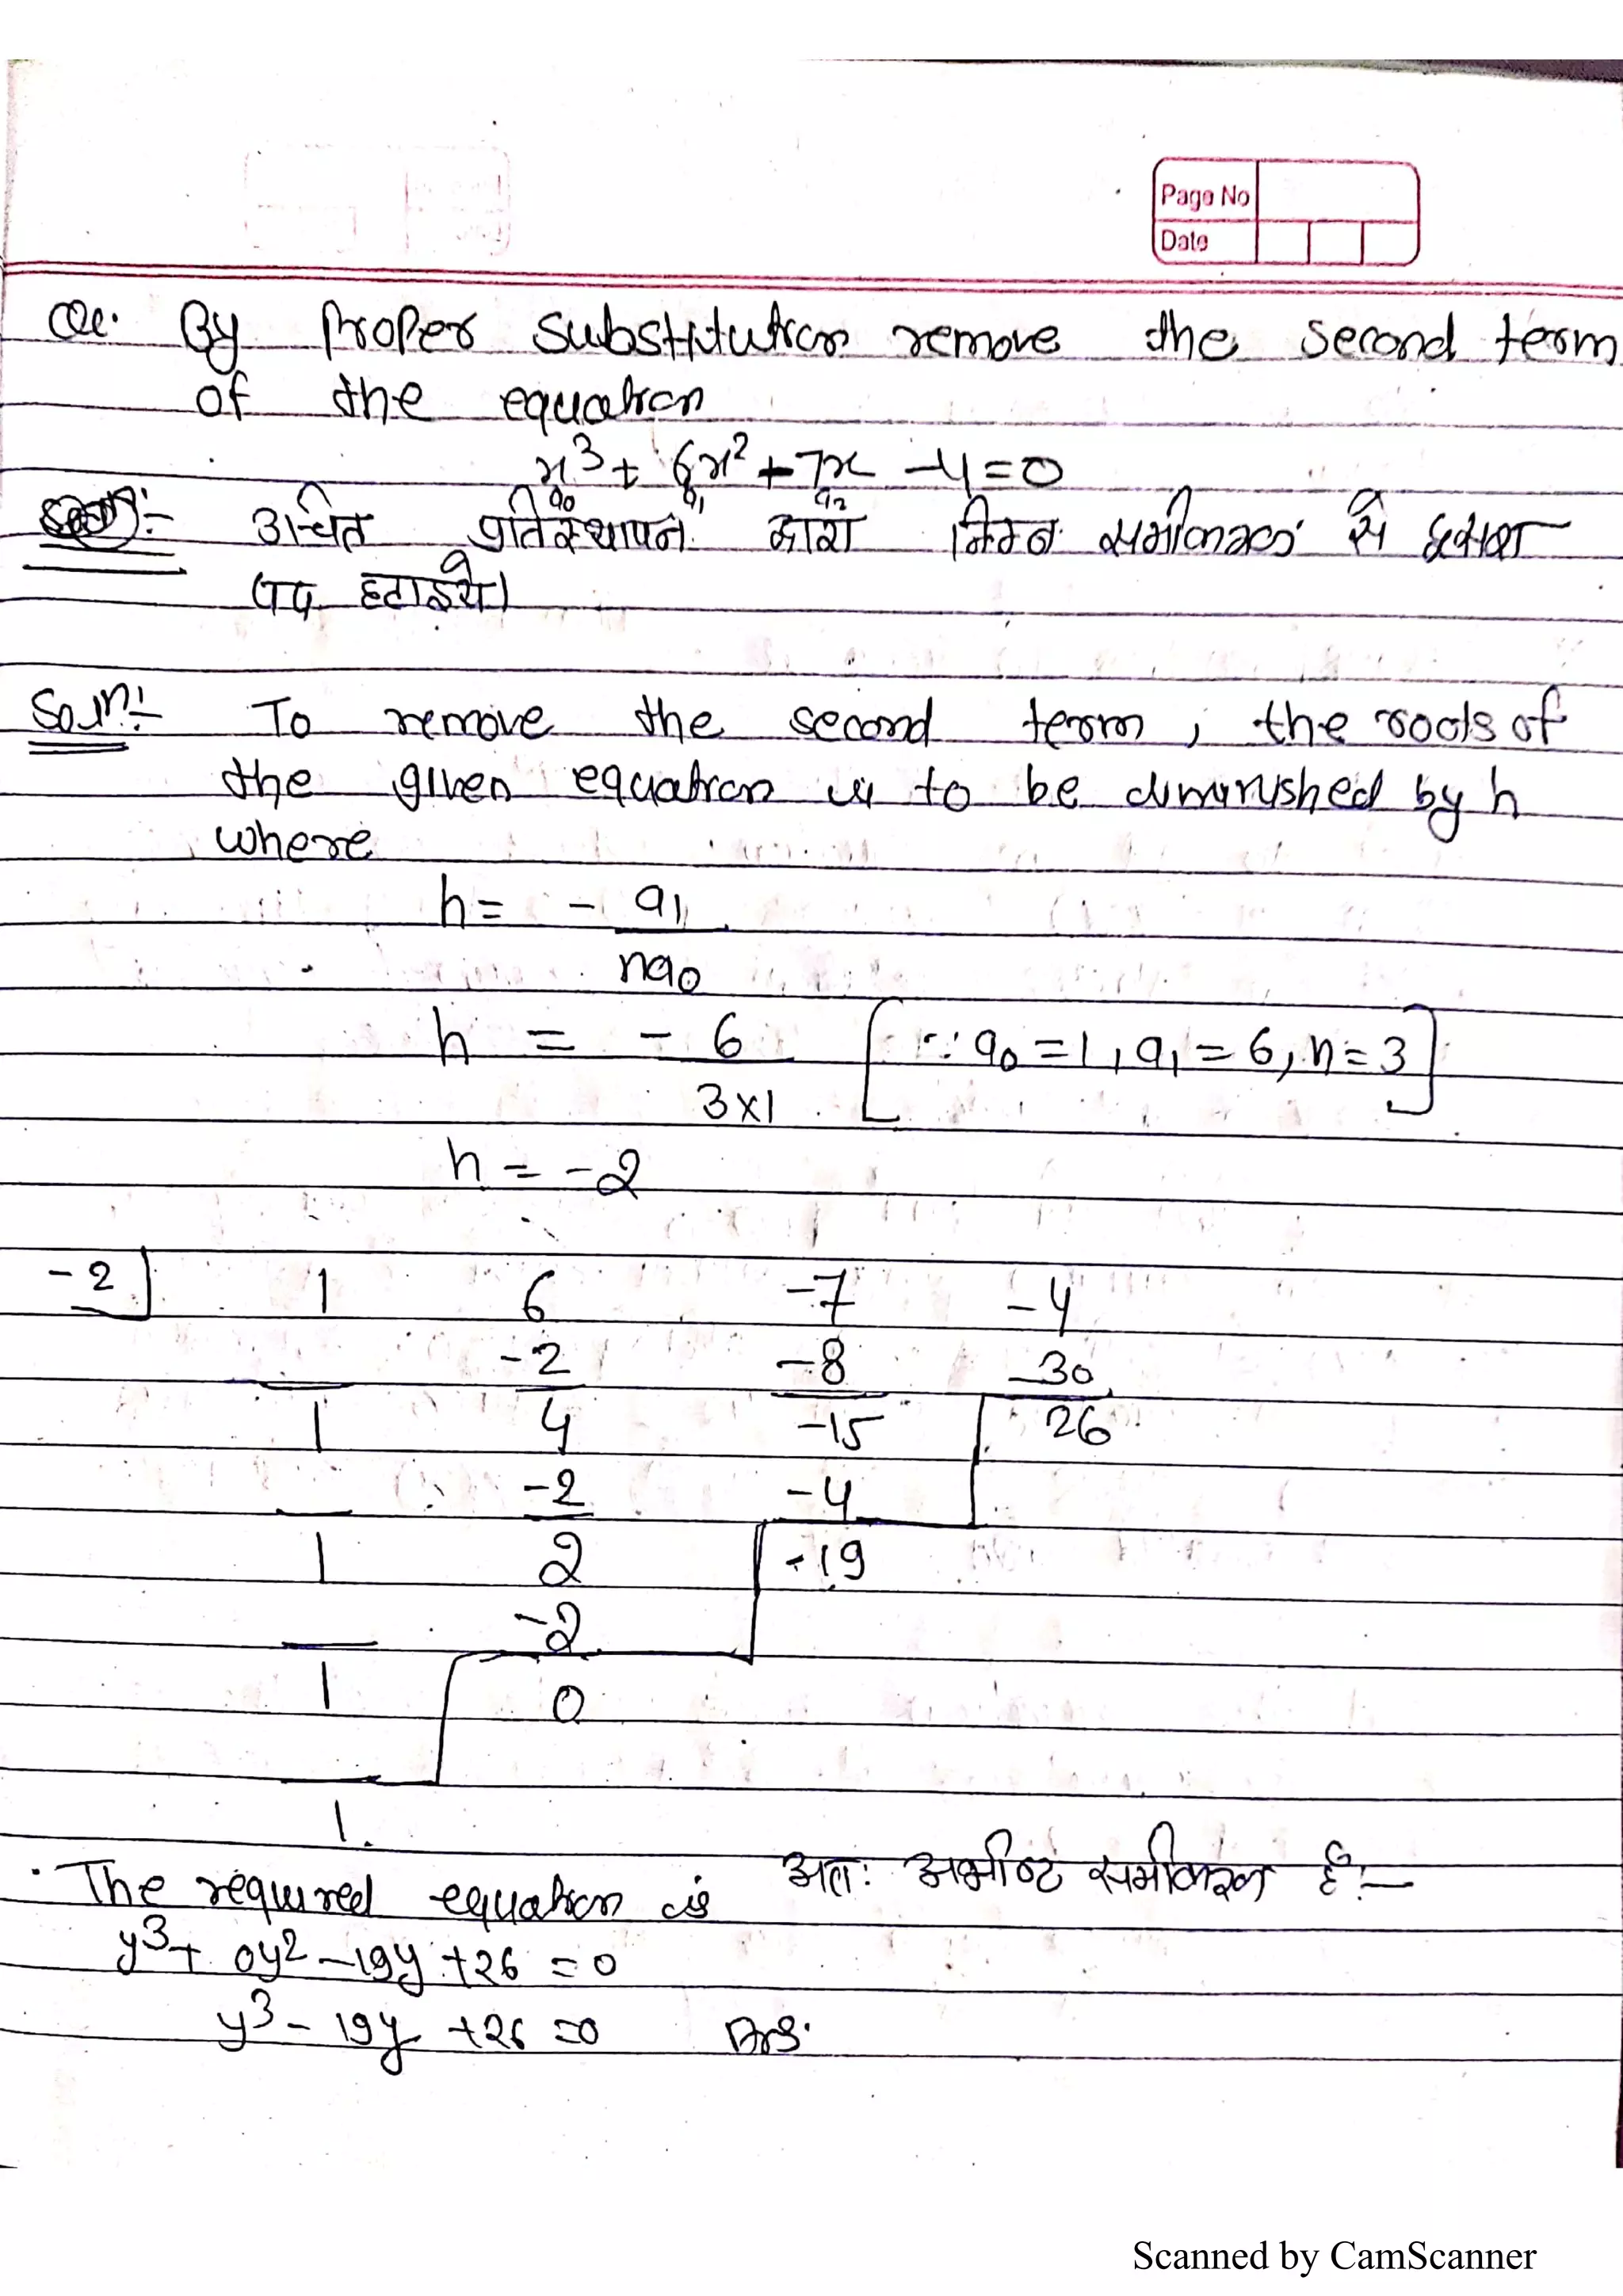 Page No
Date
Q. By Proper substitution remove the second term
of the equation
x³ + 6x² + 7x - 4 = 0
a₀ a₁ a₂
उचित प्रतिस्थापन द्वारा निम्न समीकरण से दूसरा
पद हटाइये।
Soln:- To remove the second term, the roots of
the given equation is to be diminished by h
where
h = - a₁
na₀
h = - 6 [∵ a₀ = 1, a₁ = 6, n = 3]
3×1
h = -2
-2 1 6 -7 -4
-2 -8 30
1 4 -15 26
-2 -4
1 2 -19
-2
1 0
1.
The required equation is अतः अभीष्ट समीकरण है:-
y³ + 0y² - 19y + 26 = 0
y³ - 19y + 26 = 0 Ans.
Scanned by CamScanner